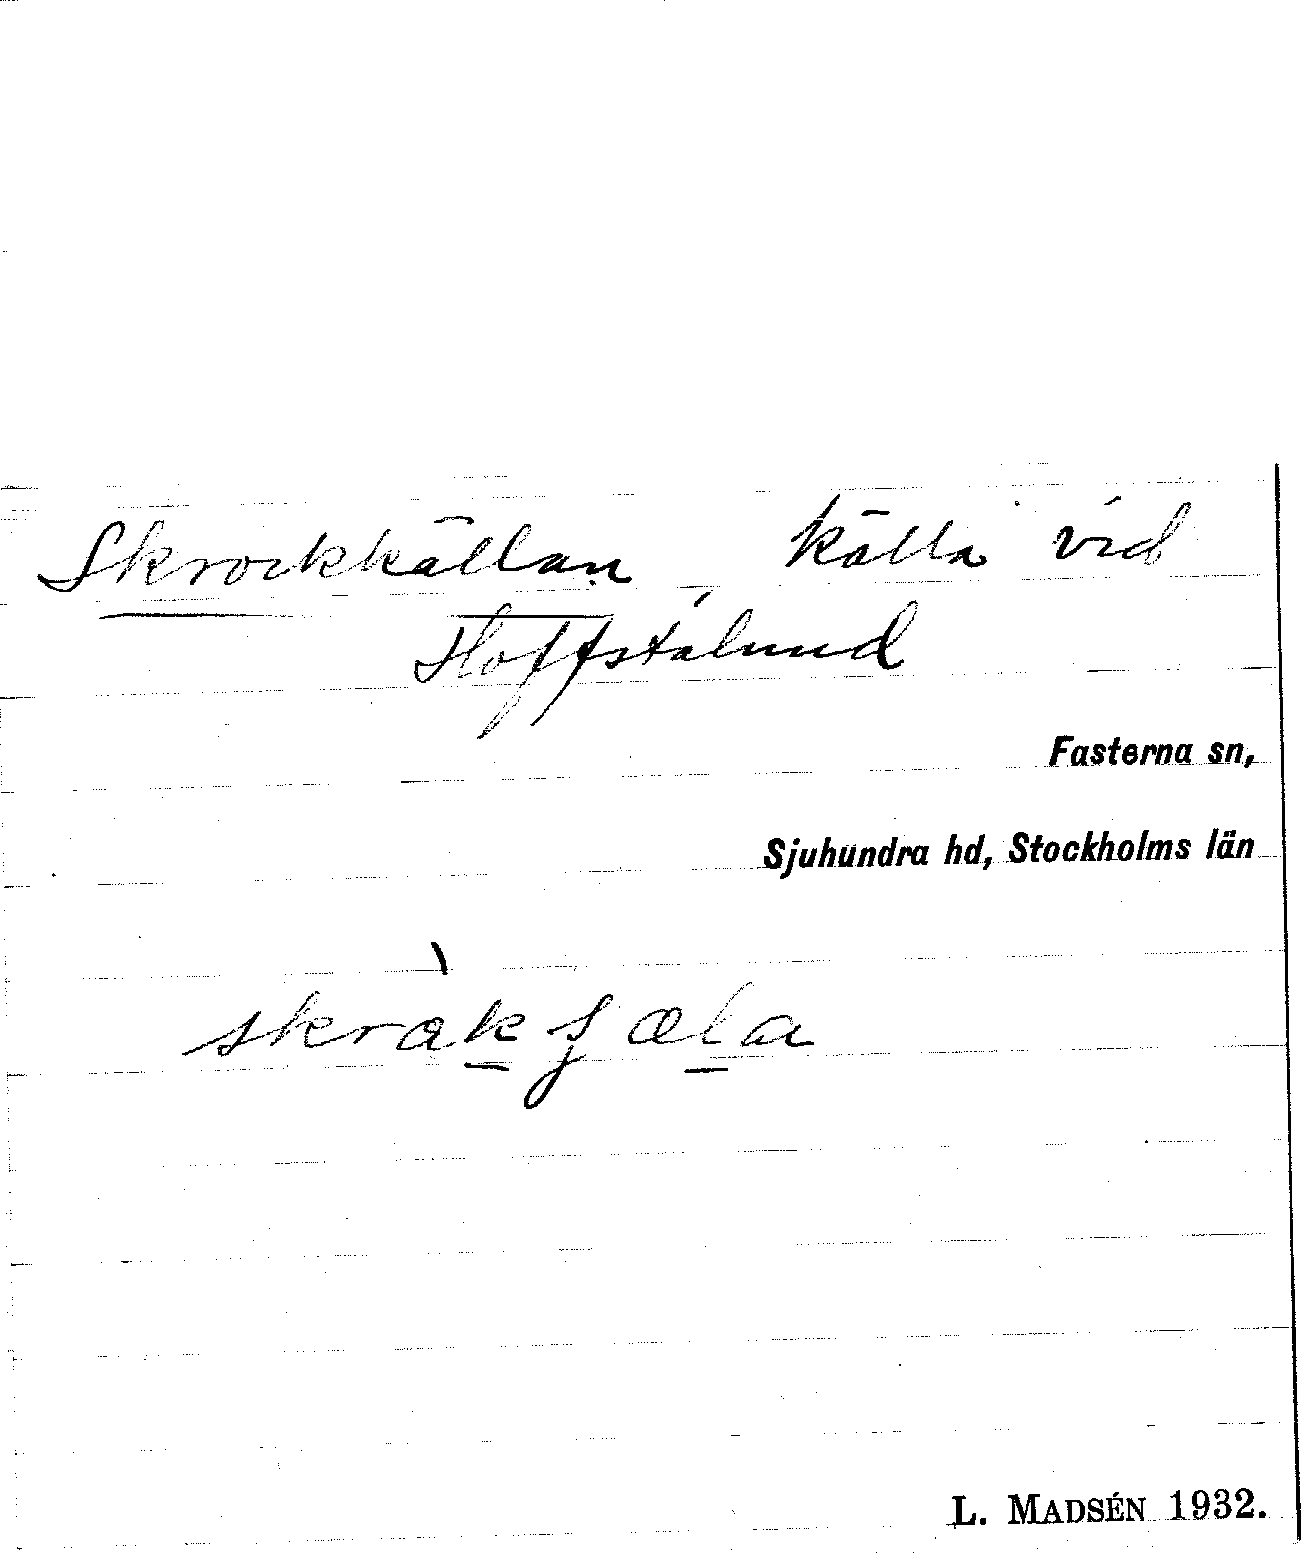 Skrockkällan, källa vid
Hoffstalund
Fasterna sn,
Sjuhundra hd, Stockholms län
L. MADSÉN 1932.